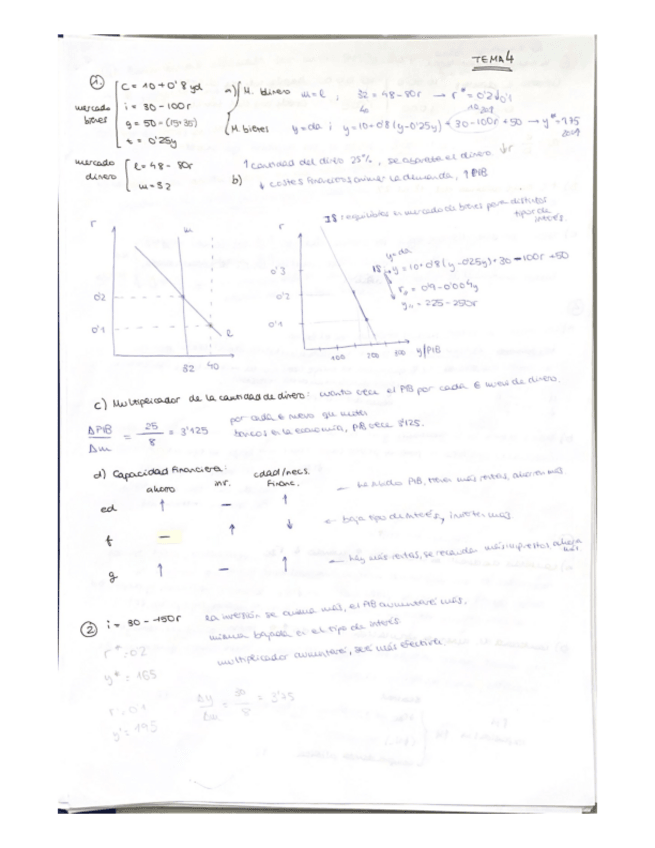 TEMA 4
①
mercado bienes
C = 10 + 0'8 yd
i = 30 - 100r
g = 50 - (15+35)
t = 0'25y
a) M. dinero m = l ; 32 = 48 - 80r → r* = 0'2 ↓0'1
40
M. bienes y = da ; y = 10 + 0'8 (y - 0'25y) + 30 - 100r + 50 → y* = 175
mercado dinero
l = 48 - 80r
m = 32
b) ↑ cantidad del dinero 25%, se abarata el dinero ↓r
↓ costes financieros anima la demanda, ↑ PIB
r
m
0'2
0'1
l
32 40
r
IS equilibrios en mercado de bienes para distintos tipos de interés
y = da
IS y = 10 + 0'8 (y - 0'25y) + 30 - 100r + 50
r = 0'9 - 0'004y
y = 225 - 250r
0'3
0'2
0'1
100 200 300 y/PIB
c) Multiplicador de la cantidad de dinero: cuánto crece el PIB por cada € nuevo de dinero.
ΔPIB / Δm = 25 / 8 = 3'125
por cada € nuevo que meten
bancos en la economía, PIB crece 3'125.
d) Capacidad financiera:
ahorro inv. cdad/neces. financ.
ed ↑ – ↑
PIB, tienen más rentas, ahorran más
f – ↑ ↓ ← baja tipo de interés, invierten más.
g ↑ – ↑ ← hay más rentas, se recauda más impuestos ahorra más
② i = 30 - 150r
la inversión se anima más, el PIB aumentará más.
misma bajada en el tipo de interés
multiplicador aumentará, será más efectiva.
r* = 0'2
y* = 165
r = 0'1
y' = 195
Δy / Δm = 30 / 8 = 3'75